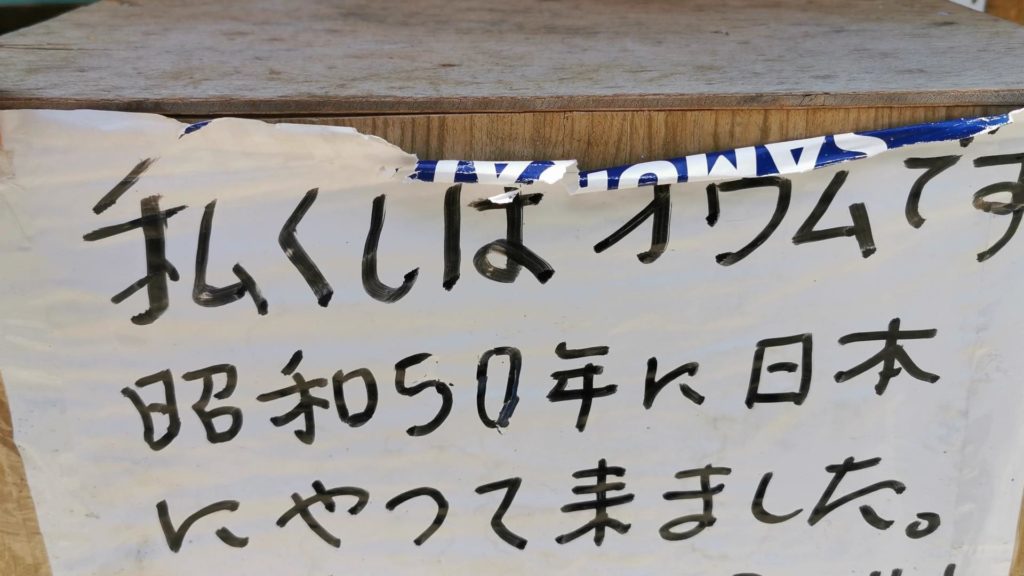 SAM
私くしはオウムです
昭和50年に日本
にやって来ました。